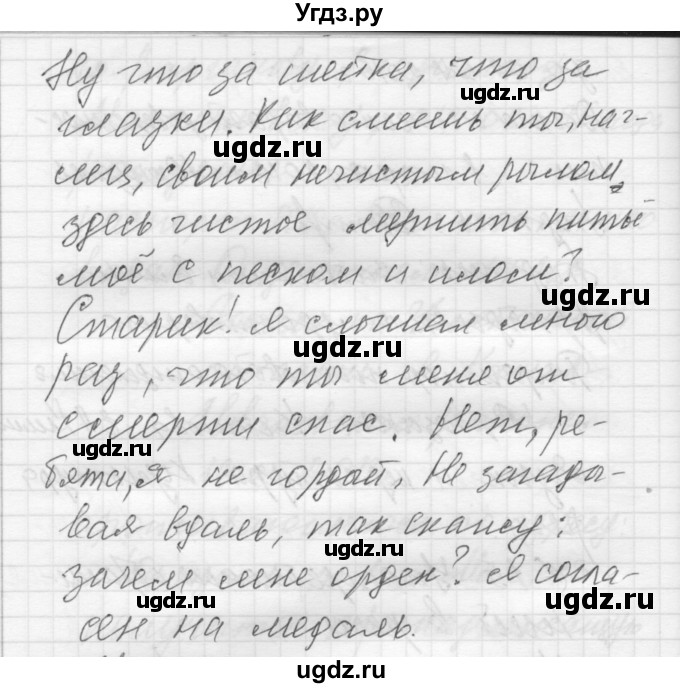 Угдз.ру
Ну что за шейка, что за
глазки. Как смеешь ты, наг-
лец, своим нечистым рылом
здесь чистое мутить питьё
моё с песком и илом?
Старик! Я слышал много
раз, что ты меня от
смерти спас. Нет, ре-
бята, я не гордый, Не загады-
вая вдаль, так скажу:
зачем мне орден? Я согла-
сен на медаль.
ugdz.ru
ugdz.ru
ugdz.ru
ugdz.ru
ugdz.ru
ugdz.ru
ugdz.ru
ugdz.ru
ugdz.ru